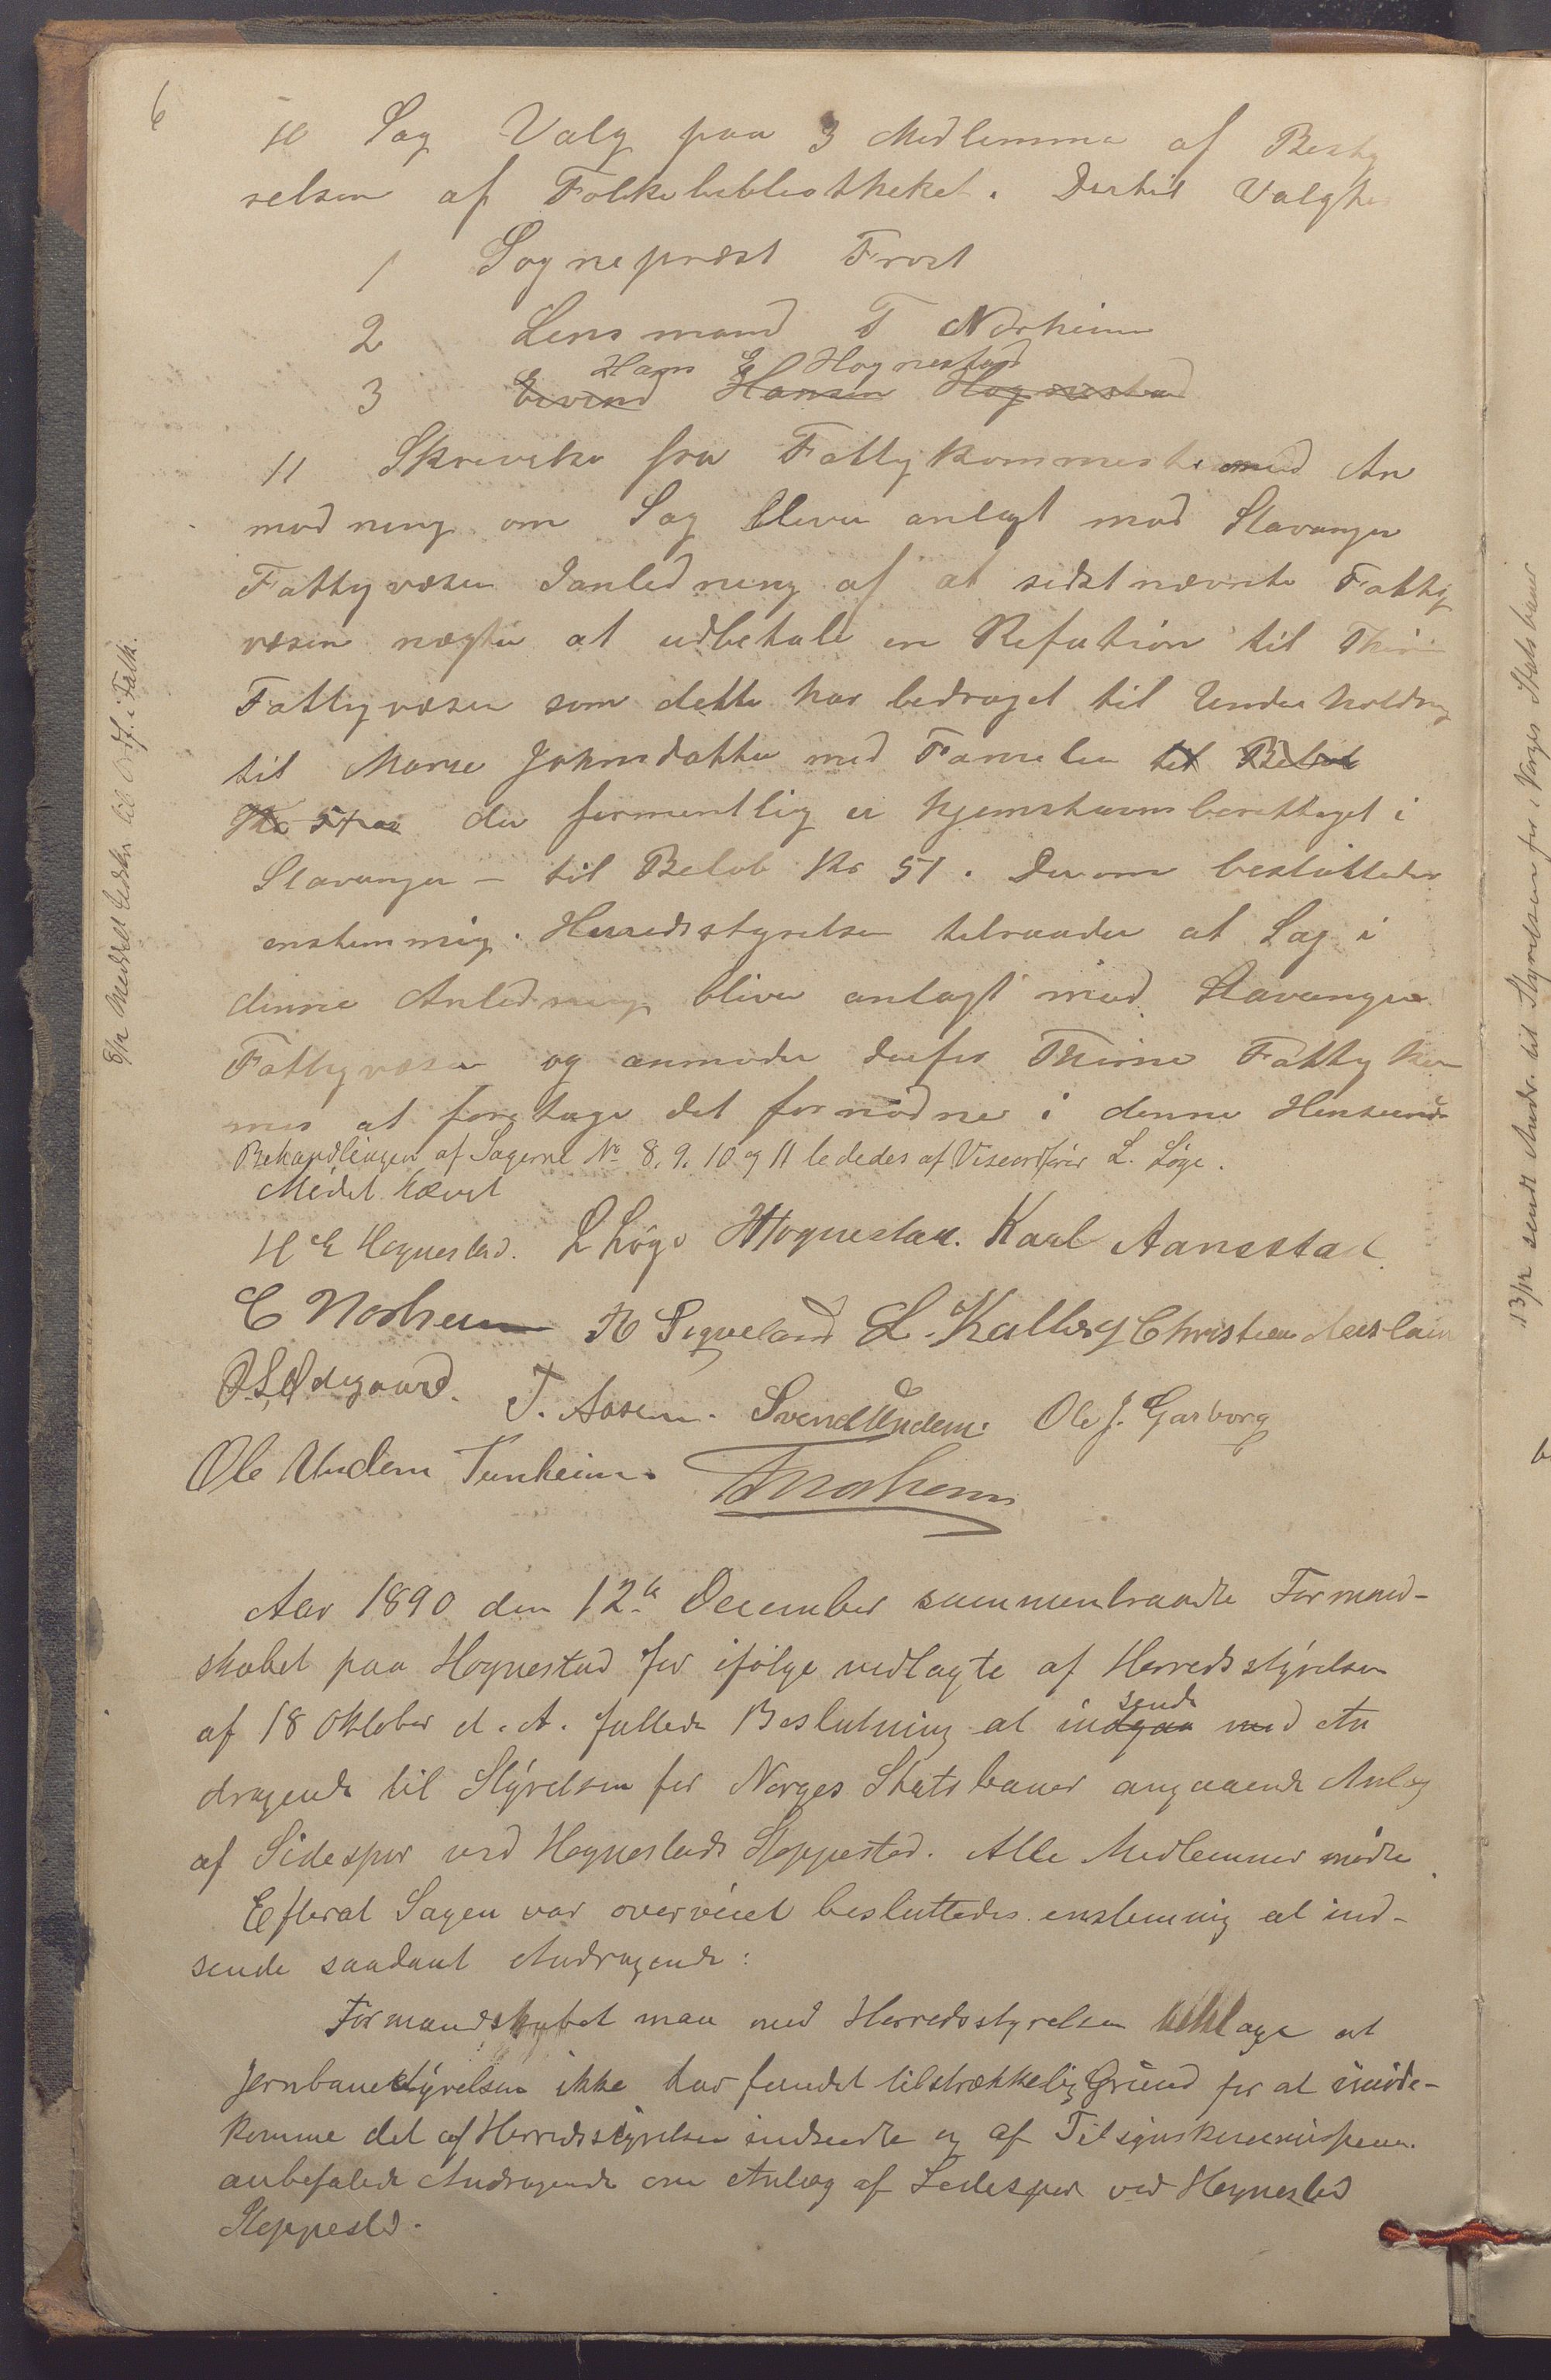 6
10 Sag Valg paa 3 Medlemme af Besty
relsen af Folkebibliotheket. Dertil Valgtes
1 Sogneprest Frost
2 Lensmand T Norheim
Hans E Hognestad
3 Eivind Hansen Hognestad
11 Skrivelse fra Fattigkommesionen med An
modning om Sag bliver anlagt mod Stavanger
Fattigvæsen Ianledning af at sidstnævnte Fattig
væsen nægter at udbetale en Refution til Thime
Fattigvæsen som dette har bedraget til Underholdning
til Marie Johnsdatter med Familie til Beløb
Kr 51 der formentlig er hjemstavnsberettiget i
Stavanger – til Beløb Kr 51. Derom besluttedes
enstemmig. Herredsstyrelsen tilraader at Sag i
denne Anledning bliver anlagt mod Stavanger
Fattigvæsen og anmoder derfor Thime Fattigkom
mis at foretage det fornødne i denne Henseende
Behandlingen af Sagerne No 8, 9, 10 og 11 lededes af Viseordfører L. Löge.
Mødet hævet
H E Hognestad. L Löge H Hognestad. Karl Aanestad.
E Norheim R Sigveland L. Kalberg Christian Auslain
O.S. Ødegaard. T. Aasen. Svend Undem. Ole J. Garborg
Ole Undem Tunheim. T Norheim
Aar 1890 den 12te December sammentraadte Formand-
skabet paa Hognestad for ifølge vedlagte af Herredsstyrelsen
sende
af 18 Oktober d. A. fattede Beslutning at indgaa med An
dragende til Styrelsen for Norges Statsbaner angaaende Anlæg
af Sidespor ved Hognestads Stoppested. Alle Medlemmer mødte.
Efterat Sagen var overveiet besluttedes enstemmig at ind-
sende saadant Andragende:
Formandskabet maa med Herredsstyrelsen beklage at
Jernbanestyrelsen ikke har fundet tilstrækkelig Grund for at imøde-
komme det af Herredsstyrelsen indsendte og af Tilsynskommissionen
anbefalede Andragende om Anlæg af Sidespor ved Hognestad
Stoppested.
8/12 Meddelt Udskr. til Ordf. i Fattk.
13/12 sendt Andr. til Styrelsen for Norges Statsbaner